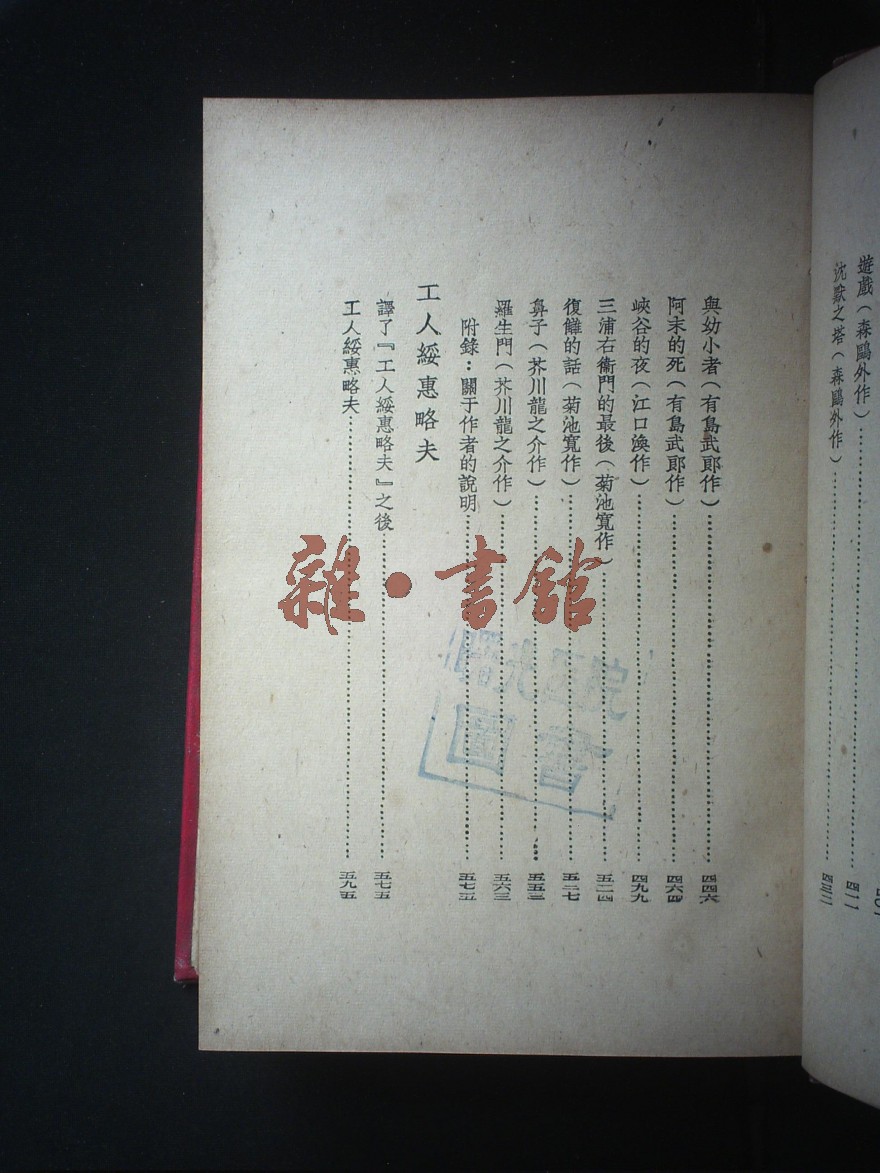 遊戲(森鷗外作)……四一一
沈默之塔(森鷗外作)……四三二
與幼小者(有島武郎作)……四四六
阿末的死(有島武郎作)……四六四
峽谷的夜(江口渙作)……四九九
三浦右衞門的最後(菊池寬作)……五二四
復讎的話(菊池寬作)……五二七
鼻子(芥川龍之介作)……五五二
羅生門(芥川龍之介作)……五六三
附錄:關于作者的說明……五七五
工人綏惠略夫
譯了『工人綏惠略夫』之後……五七五
工人綏惠略夫……五九五
雜·書館
院
圖書